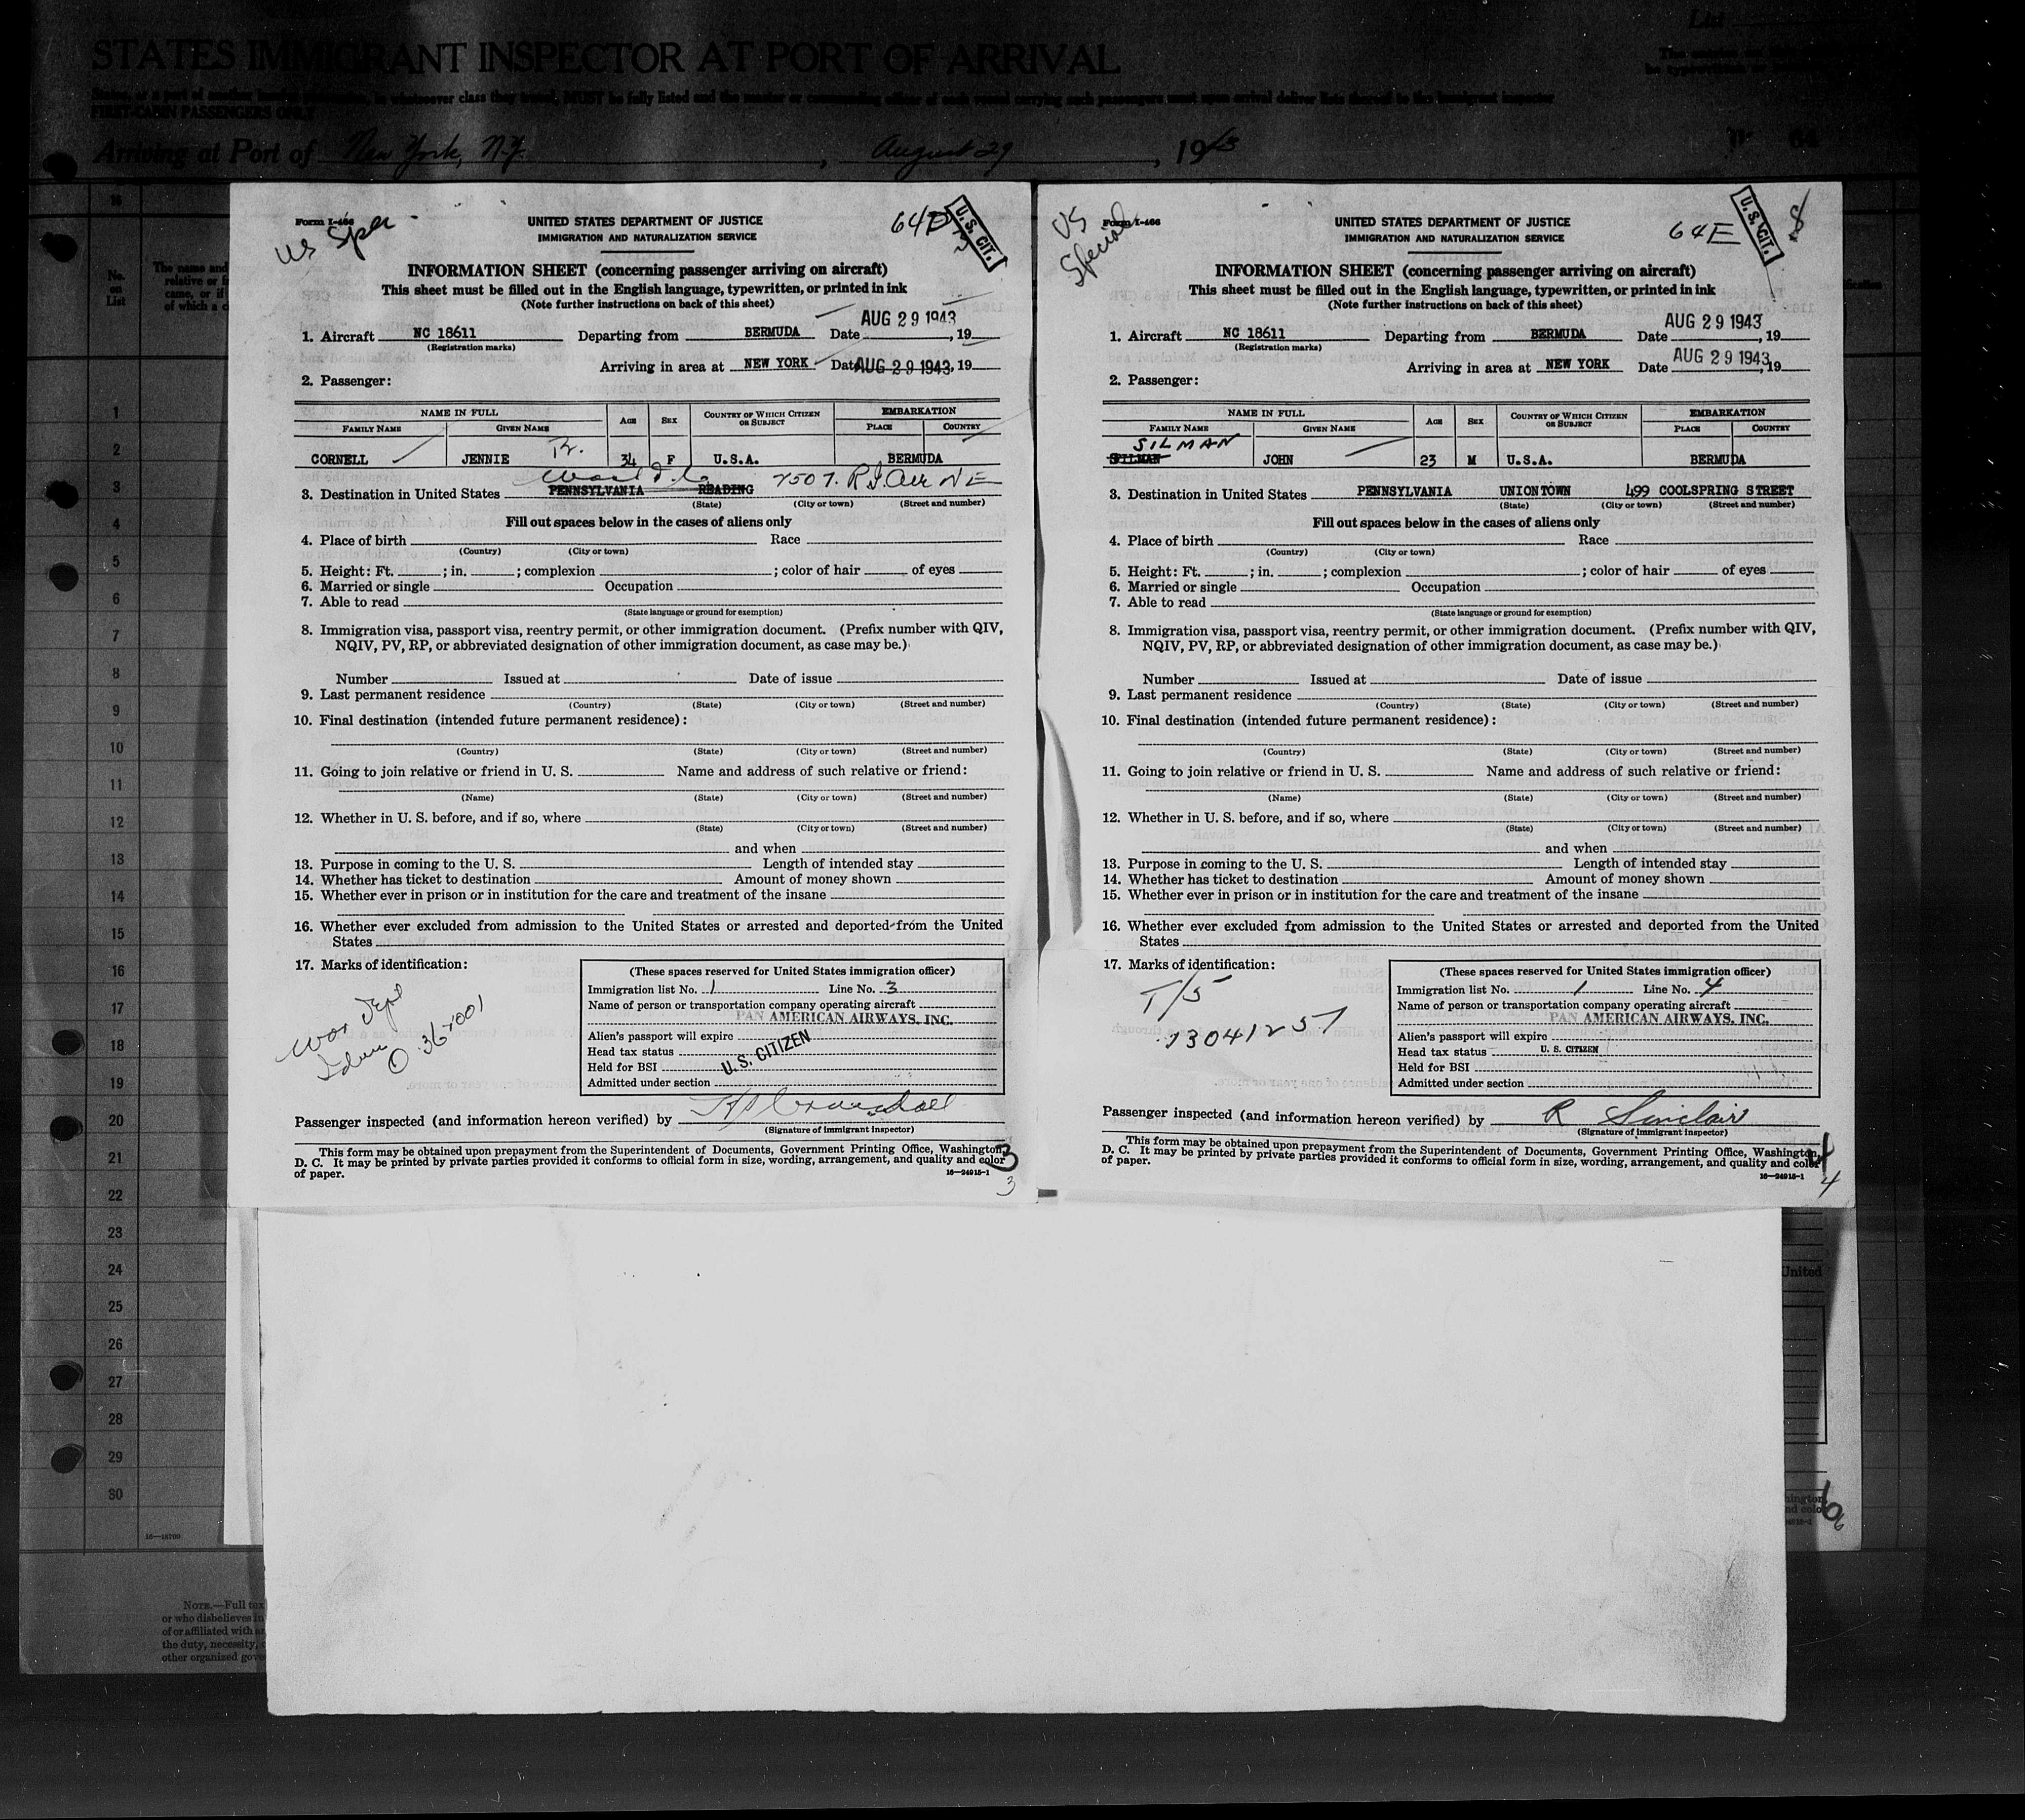 List
STATES IMMIGRANT INSPECTOR AT PORT OF ARRIVAL
FIRST-CABIN PASSENGERS ONLY
Arriving at Port of New York, N.Y., August 29, 1943
No. on List
1
2
3
4
5
6
7
8
9
10
11
12
13
14
15
16
17
18
19
20
21
22
23
24
25
26
27
28
29
30
16—18709
NOTE.—Full tex
or who disbelieves in
of or affiliated with an
the duty, necessity, o
other organized gove
Form I-466
US Spec
UNITED STATES DEPARTMENT OF JUSTICE
IMMIGRATION AND NATURALIZATION SERVICE
64E
U.S. CIT.
INFORMATION SHEET (concerning passenger arriving on aircraft)
This sheet must be filled out in the English language, typewritten, or printed in ink
(Note further instructions on back of this sheet)
1. Aircraft NC 18611 Departing from BERMUDA Date AUG 29 1943, 19
(Registration marks)
Arriving in area at NEW YORK Date AUG 29 1943, 19
2. Passenger:
NAME IN FULL AGE SEX COUNTRY OF WHICH CITIZEN OR SUBJECT EMBARKATION
FAMILY NAME GIVEN NAME PLACE COUNTRY
CORNELL JENNIE R. 34 F U.S.A. BERMUDA
Wash D.C. 2507 R.I. Ave NE
3. Destination in United States PENNSYLVANIA READING
(State) (City or town) (Street and number)
Fill out spaces below in the cases of aliens only
4. Place of birth Race
(Country) (City or town)
5. Height: Ft. ; in. ; complexion ; color of hair of eyes
6. Married or single Occupation
7. Able to read
(State language or ground for exemption)
8. Immigration visa, passport visa, reentry permit, or other immigration document. (Prefix number with QIV,
NQIV, PV, RP, or abbreviated designation of other immigration document, as case may be.)
Number Issued at Date of issue
9. Last permanent residence
(Country) (State) (City or town) (Street and number)
10. Final destination (intended future permanent residence):
(Country) (State) (City or town) (Street and number)
11. Going to join relative or friend in U. S. Name and address of such relative or friend:
(Name) (State) (City or town) (Street and number)
12. Whether in U. S. before, and if so, where
(State) (City or town) (Street and number)
and when
13. Purpose in coming to the U. S. Length of intended stay
14. Whether has ticket to destination Amount of money shown
15. Whether ever in prison or in institution for the care and treatment of the insane
16. Whether ever excluded from admission to the United States or arrested and deported from the United
States
17. Marks of identification:
War Dept
(These spaces reserved for United States immigration officer)
Immigration list No. 1 Line No. 3
Name of person or transportation company operating aircraft
PAN AMERICAN AIRWAYS, INC.
Alien's passport will expire
Head tax status
U.S. CITIZEN
Held for BSI
Admitted under section
Passenger inspected (and information hereon verified) by
(Signature of immigrant inspector)
This form may be obtained upon prepayment from the Superintendent of Documents, Government Printing Office, Washington,
D. C. It may be printed by private parties provided it conforms to official form in size, wording, arrangement, and quality and color
of paper.
16—24915-1
3
3
Form I-466
US Special
UNITED STATES DEPARTMENT OF JUSTICE
IMMIGRATION AND NATURALIZATION SERVICE
64E
U.S. CIT.
8
INFORMATION SHEET (concerning passenger arriving on aircraft)
This sheet must be filled out in the English language, typewritten, or printed in ink
(Note further instructions on back of this sheet)
1. Aircraft NC 18611 Departing from BERMUDA Date AUG 29 1943, 19
(Registration marks)
Arriving in area at NEW YORK Date AUG 29 1943, 19
2. Passenger:
NAME IN FULL AGE SEX COUNTRY OF WHICH CITIZEN OR SUBJECT EMBARKATION
FAMILY NAME GIVEN NAME PLACE COUNTRY
SILMAN
SPILMAN JOHN 23 M U.S.A. BERMUDA
3. Destination in United States PENNSYLVANIA UNIONTOWN 499 COOLSPRING STREET
(State) (City or town) (Street and number)
Fill out spaces below in the cases of aliens only
4. Place of birth Race
(Country) (City or town)
5. Height: Ft. ; in. ; complexion ; color of hair of eyes
6. Married or single Occupation
7. Able to read
(State language or ground for exemption)
8. Immigration visa, passport visa, reentry permit, or other immigration document. (Prefix number with QIV,
NQIV, PV, RP, or abbreviated designation of other immigration document, as case may be.)
Number Issued at Date of issue
9. Last permanent residence
(Country) (State) (City or town) (Street and number)
10. Final destination (intended future permanent residence):
(Country) (State) (City or town) (Street and number)
11. Going to join relative or friend in U. S. Name and address of such relative or friend:
(Name) (State) (City or town) (Street and number)
12. Whether in U. S. before, and if so, where
(State) (City or town) (Street and number)
and when
13. Purpose in coming to the U. S. Length of intended stay
14. Whether has ticket to destination Amount of money shown
15. Whether ever in prison or in institution for the care and treatment of the insane
16. Whether ever excluded from admission to the United States or arrested and deported from the United
States
17. Marks of identification:
T/5
13041257
(These spaces reserved for United States immigration officer)
Immigration list No. 1 Line No. 4
Name of person or transportation company operating aircraft
PAN AMERICAN AIRWAYS, INC.
Alien's passport will expire
Head tax status U. S. CITIZEN
Held for BSI
Admitted under section
Passenger inspected (and information hereon verified) by R Sinclair
(Signature of immigrant inspector)
This form may be obtained upon prepayment from the Superintendent of Documents, Government Printing Office, Washington,
D. C. It may be printed by private parties provided it conforms to official form in size, wording, arrangement, and quality and color
of paper.
16—24915-1
4
4
United